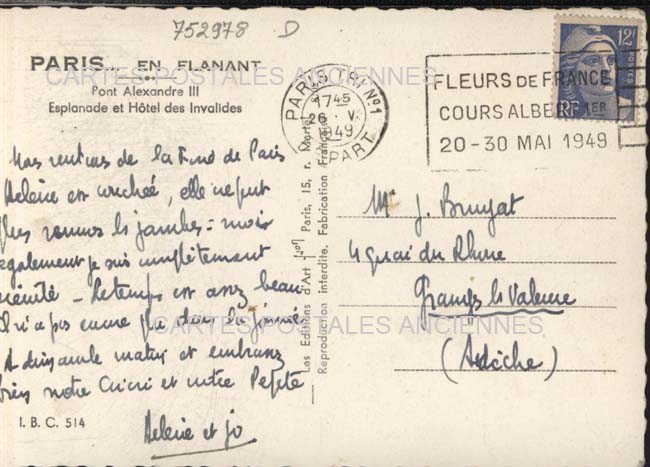 752978 D
PARIS... EN FLANANT
CARTES POSTALES ANCIENNES
Pont Alexandre III
Esplanade et Hôtel des Invalides
PARIS TRI Nº1
1745
26 V
1949
DEPART
FLEURS DE FRANCE
COURS ALBERT 1ER
20-30 MAI 1949
12F
RF
POSTES
Nous rentrons de la Foire de Paris
Hélène est couchée, elle ne peut
plus remuer les jambes = moi
également je suis complètement
éreinté - Le temps est assez beau
Il n'a pas encore plu dans la journée
A dimanche matin et embrassez
bien notre Cricri et votre Pepète
Hélène et Jo
I. B. C. 514
Les Editions d'Art Paris, 15, r. Martel
Reproduction Interdite. Fabrication Française
Mr J. Bruyat
4 quai du Rhône
Granges les Valence
(Ardèche)
CARTES POSTALES ANCIENNES